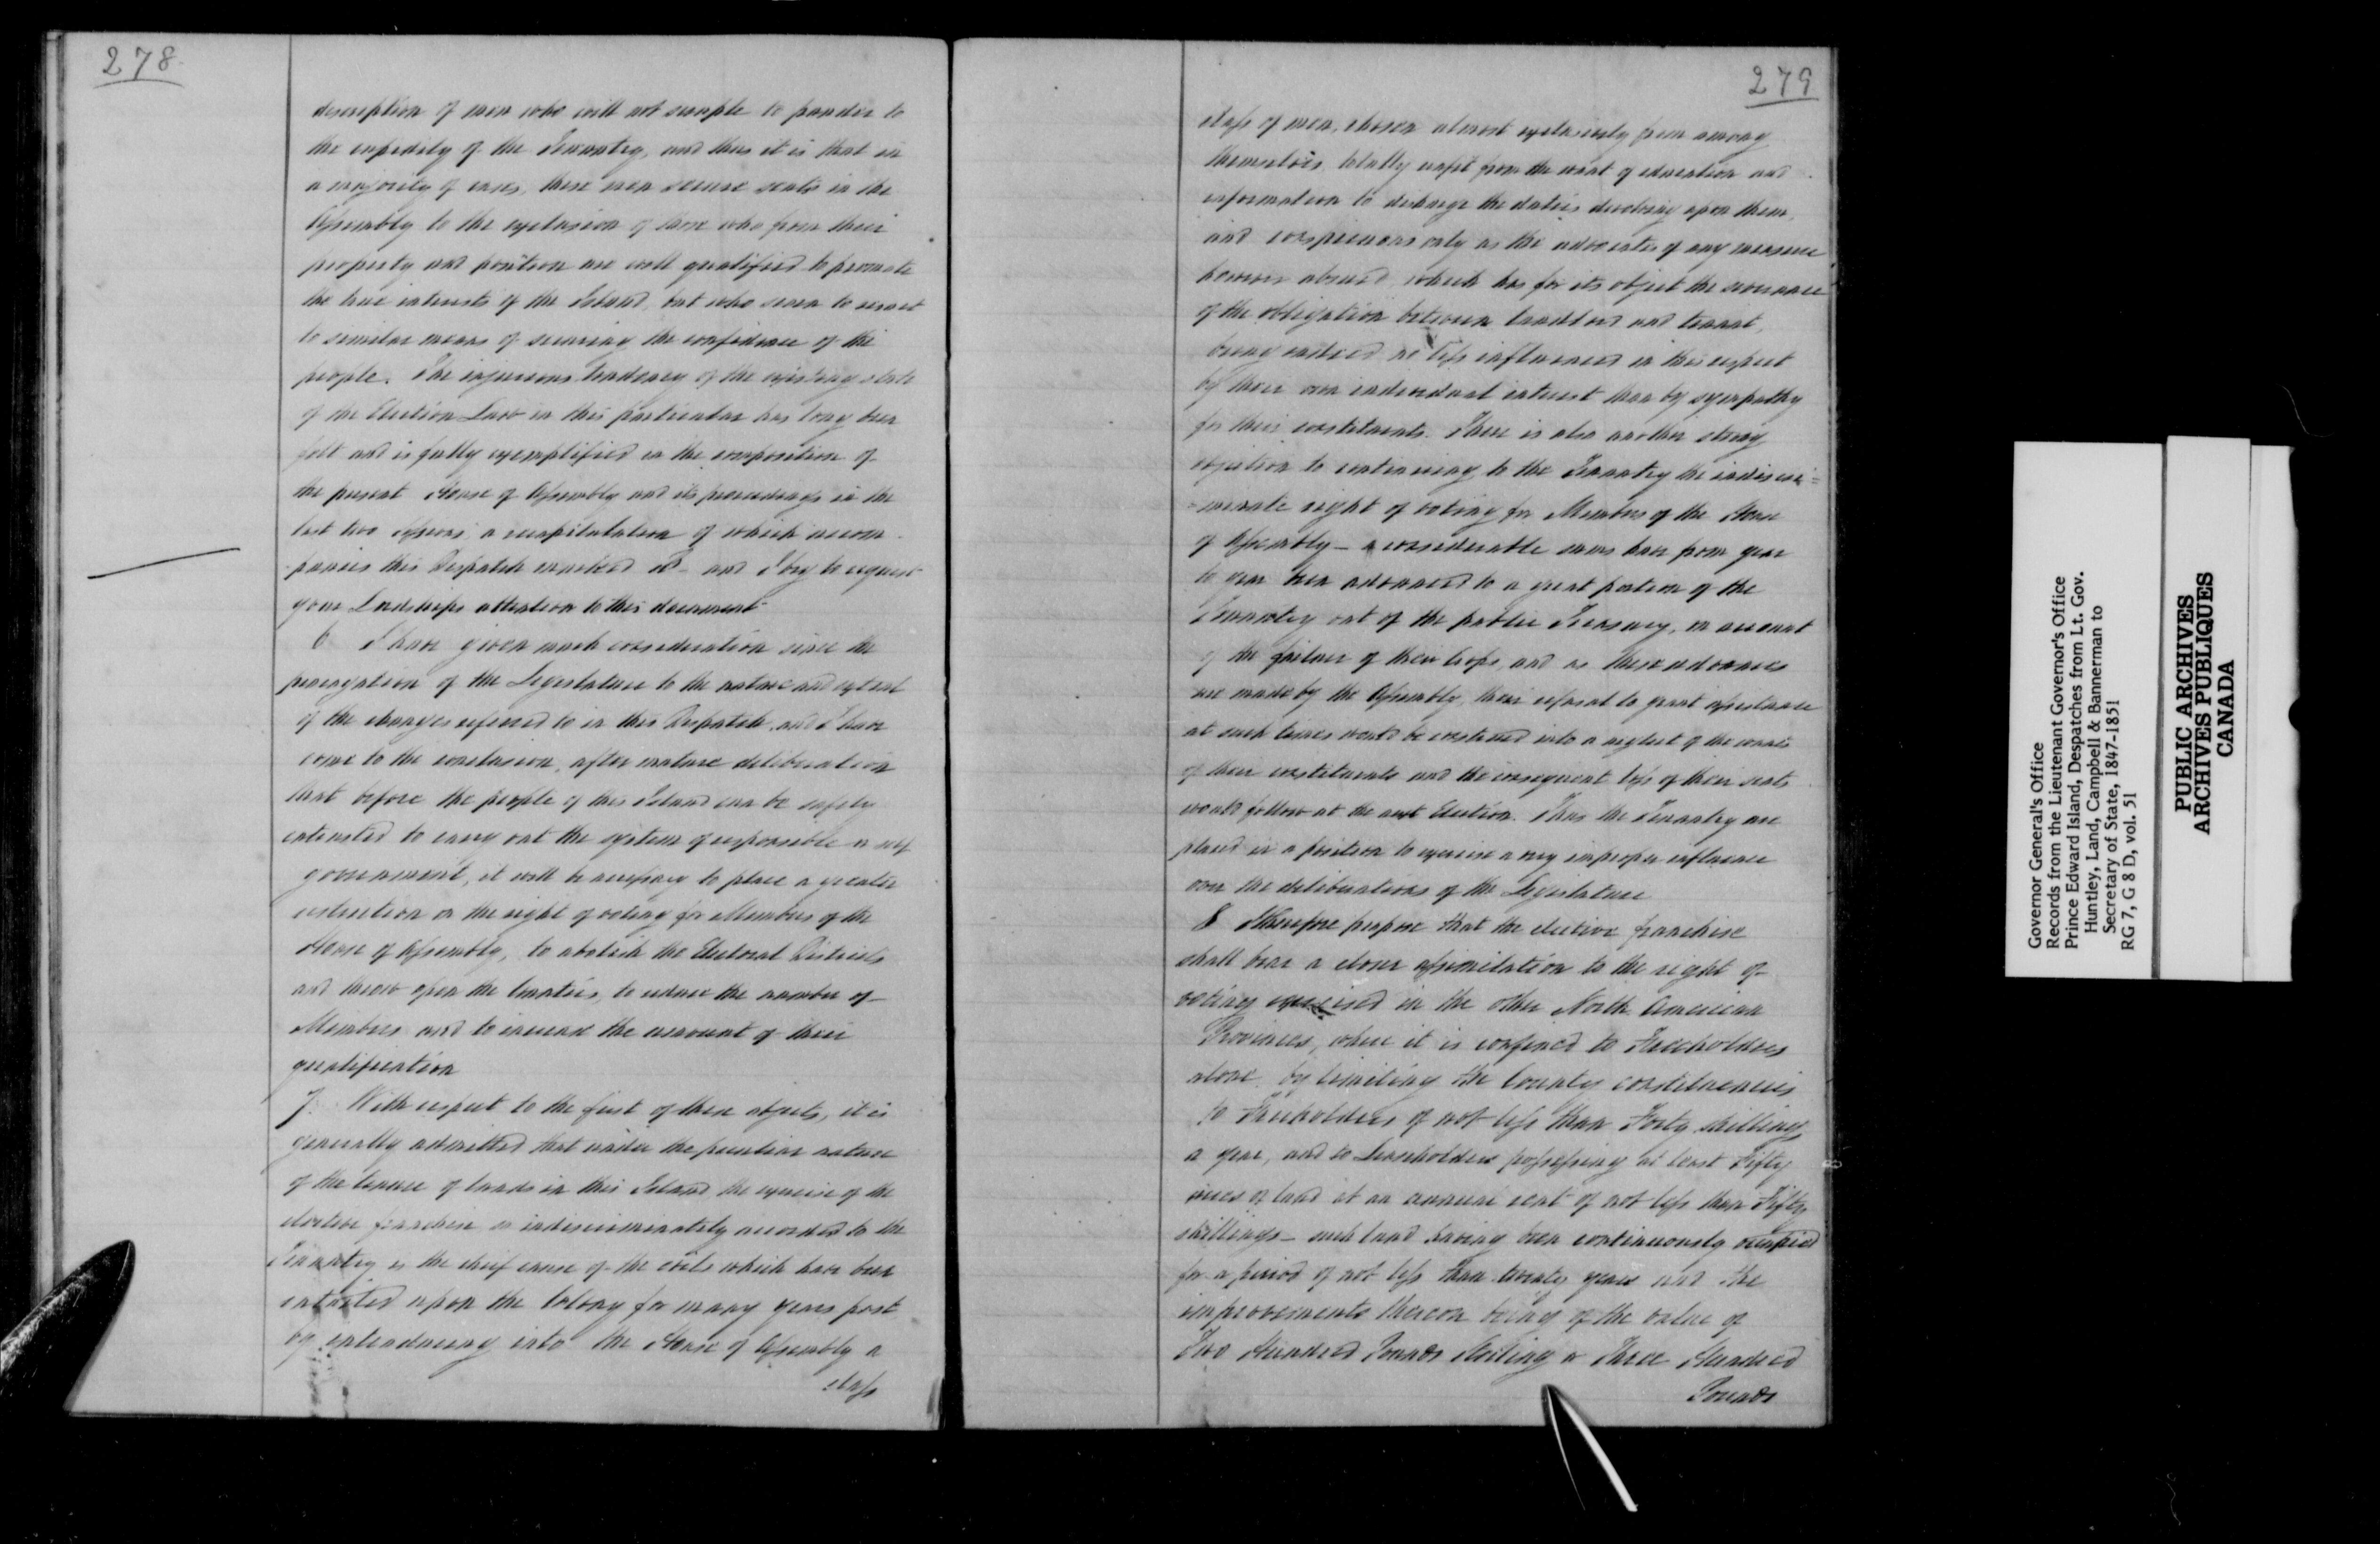 278
description of men who will not scruple to pander to
the cupidity of the Tenantry, and thus it is that in
a majority of cases, these men secure seats in the
Assembly to the exclusion of those who from their
property and position are well qualified to promote
the true interests of the Island, but who scorn to resort
to similar means of securing the confidence of the
people. The injurious tendency of the existing state
of the Election Law in this particular has long been
felt and is fully exemplified in the composition of
the present House of Assembly and its proceedings in the
last two Sessions, a recapitulation of which accom-
panies this Despatch marked and I beg to request
your Lordships attention to this document
6 I have given much consideration since the
prorogation of the Legislature to the nature and extent
of the changes referred to in this Despatch, and I have
come to the conclusion, after mature deliberation
that before the people of this Island can be safely
entrusted to carry out the system of responsible or self
government, it will be necessary to place a greater
restriction on the right of voting for Members of the
House of Assembly, to abolish the Electoral Districts
and throw open the Counties, to reduce the number of
Members and to increase the amount of their
qualification
7. With respect to the first of these objects, it is
generally admitted that under the peculiar nature
of the tenure of lands in this Island the exercise of the
elective franchise so indiscriminately accorded to the
Tenantry is the chief cause of the evils which have been
entailed upon the Colony for many years past
by introducing into the House of Assembly a
class
279
class of men, chosen almost exclusively from among
themselves, totally unfit from the want of education and
information to discharge the duties devolving upon them,
and conspicuous only as the advocates of any measure
however absurd, which has for its object the severance
of the obligation between landlord and tenant,
being indeed no less influenced in this respect
by their own individual interest than by sympathy
for their constituents. There is also another strong
objection to continuing to the Tenantry the indiscri=
=minate right of voting for Members of the House
of Assembly - considerable sums have from year
to year been advanced to a great portion of the
Tenantry out of the public Treasury, on account
of the failure of their Crops, and as these advances
are made by the Assembly, their refusal to grant assistance
at such times would be construed into a neglect of the wants
of their constituents and the consequent loss of their seats
would follow at the next Election. Thus the Tenantry are
placed in a position to exercise a very improper influence
over the deliberations of the Legislature
8 I therefore propose that the elective franchise
shall bear a closer assimilation to the right of
voting exercised in the other North American
Provinces, where it is confined to Freeholders
alone, by limiting the County constituencies
to Freeholders of not less than Forty shillings
a year, and to Leaseholders possessing at least Fifty
acres of land at an annual rent of not less than Fifty
shillings - such land having been continuously occupied
for a period of not less than twenty years and the
improvements thereon being of the value of
Two Hundred Pounds Sterling or Three Hundred
Pounds
Governor General's Office
Records from the Lieutenant Governor's Office
Prince Edward Island, Despatches from Lt. Gov.
Huntley, Land, Campbell & Bannerman to
Secretary of State, 1847-1851
RG 7, G 8 D, vol. 51
PUBLIC ARCHIVES
ARCHIVES PUBLIQUES
CANADA